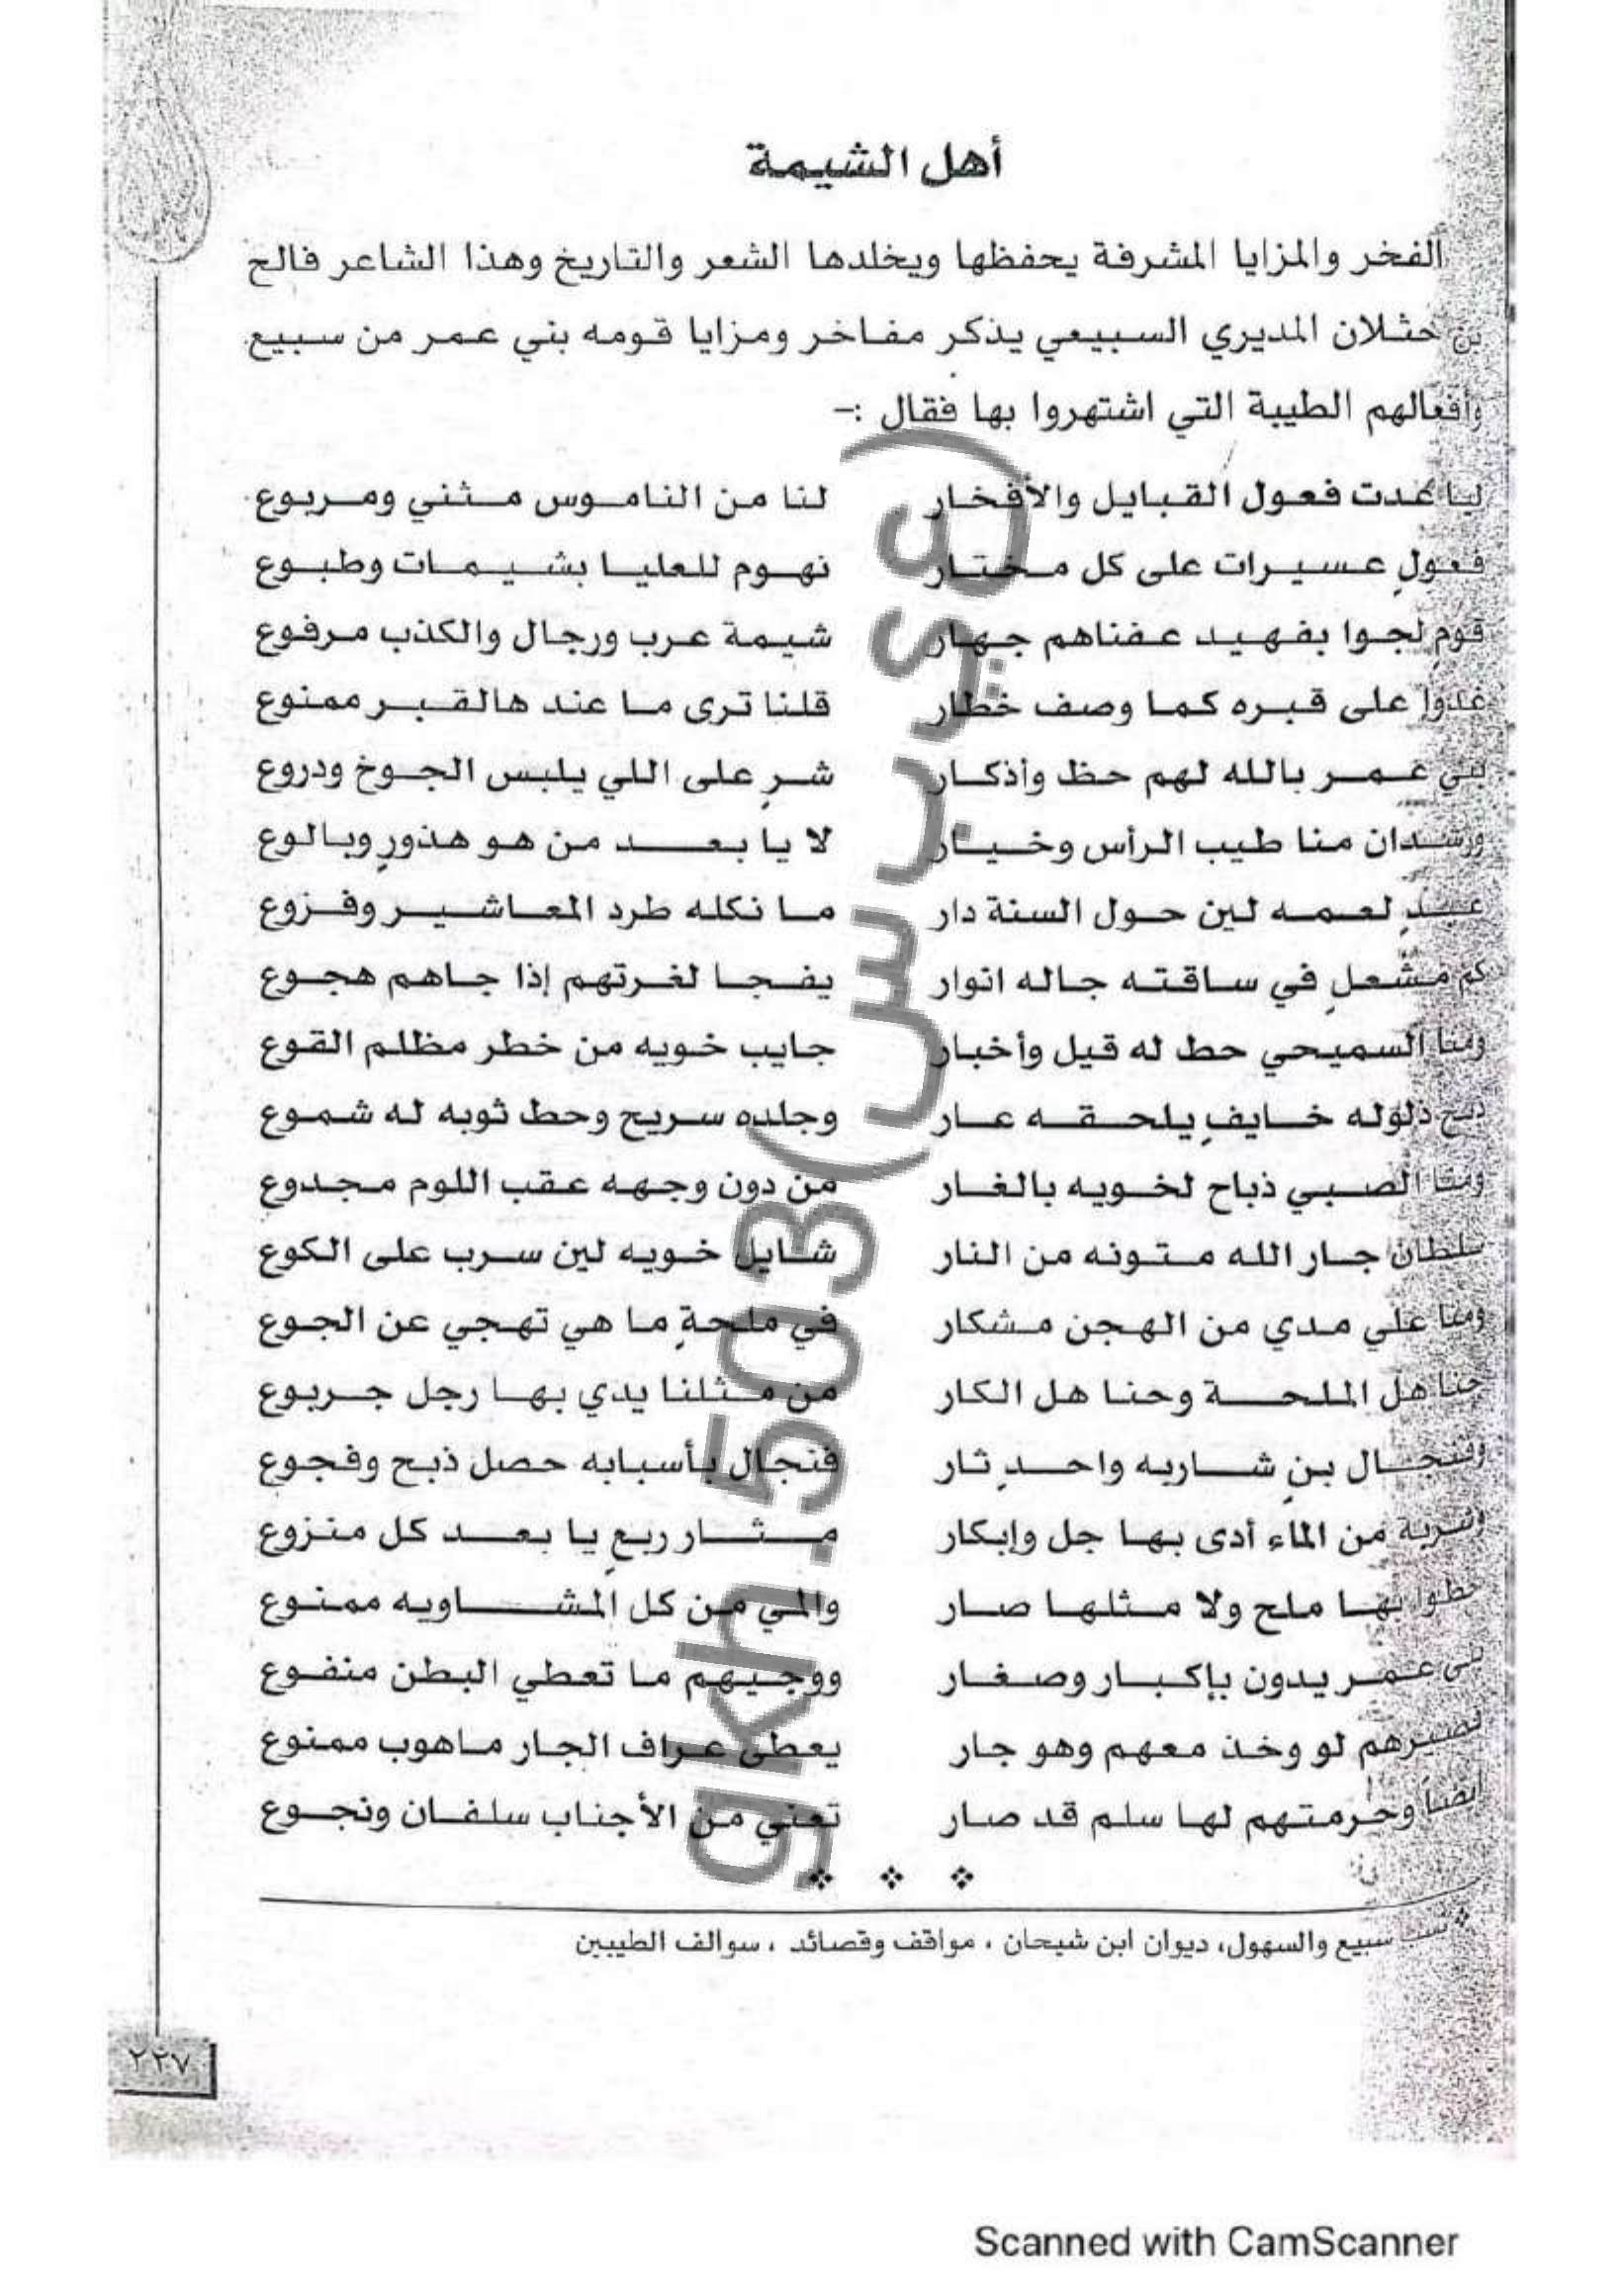 أهل الشيمة
الفخر والمزايا المشرفة يحفظها ويخلدها الشعر والتاريخ وهذا الشاعر فالح
بن حثلان المديري السبيعي يذكر مفاخر ومزايا قومه بني عمر من سبيع
وأفعالهم الطيبة التي اشتهروا بها فقال :-
ليا عدت فعول القبايل والأفخار لنا من الناموس مثني ومربوع
فعولٍ عسيرات على كل مختار نهوم للعليا بشيمات وطبوع
قومٍ لجوا بفهيد عفناهم جهار شيمة عرب ورجال والكذب مرفوع
غدوا على قبره كما وصف خطار قلنا ترى ما عند هالقبر ممنوع
بني عمر بالله لهم حظ وأذكار شرٍ على اللي يلبس الجوخ ودروع
ورشدان منا طيب الرأس وخيار لا يا بعد من هو هذورٍ وبالوع
عبدٍ لعمه لين حول السنة دار ما نكله طرد المعاشير وفزوع
كم مشعلٍ في ساقته جاله انوار يفجا لغرتهم إذا جاهم هجوع
ومنا السميحي حط له قيل وأخبار جايب خويه من خطر مظلم القوع
ذبح ذلوله خايفٍ يلحقه عار وجلده سريح وحط ثوبه له شموع
ومنا الصبي ذباح لخويه بالغار من دون وجهه عقب اللوم مجدوع
سلطان جار الله متونه من النار شايل خويه لين سرب على الكوع
ومنا علي مدي من الهجن مشكار في ملحةٍ ما هي تهجي عن الجوع
حنا هل الملحة وحنا هل الكار من مثلنا يدي بها رجل جربوع
وفنجال بنٍ شاربه واحدٍ ثار فنجال بأسبابه حصل ذبح وفجوع
وشربة من الماء أدى بها جل وإبكار مثار ربعٍ يا بعد كل منزوع
حطوا بها ملح ولا مثلها صار والمي من كل المشاويه ممنوع
بني عمر يدون بإكبار وصغار ووجيهم ما تعطي البطن منفوع
قصيرهم لو وخذ معهم وهو جار يعطى عراف الجار ماهوب ممنوع
أيضاً وحرمتهم لها سلم قد صار تعني من الأجناب سلفان ونجوع
سبيع والسهول، ديوان ابن شيحان ، مواقف وقصائد ، سوالف الطيبين
٢٢٧
gkh.503(س.ب.ي.ع)
Scanned with CamScanner